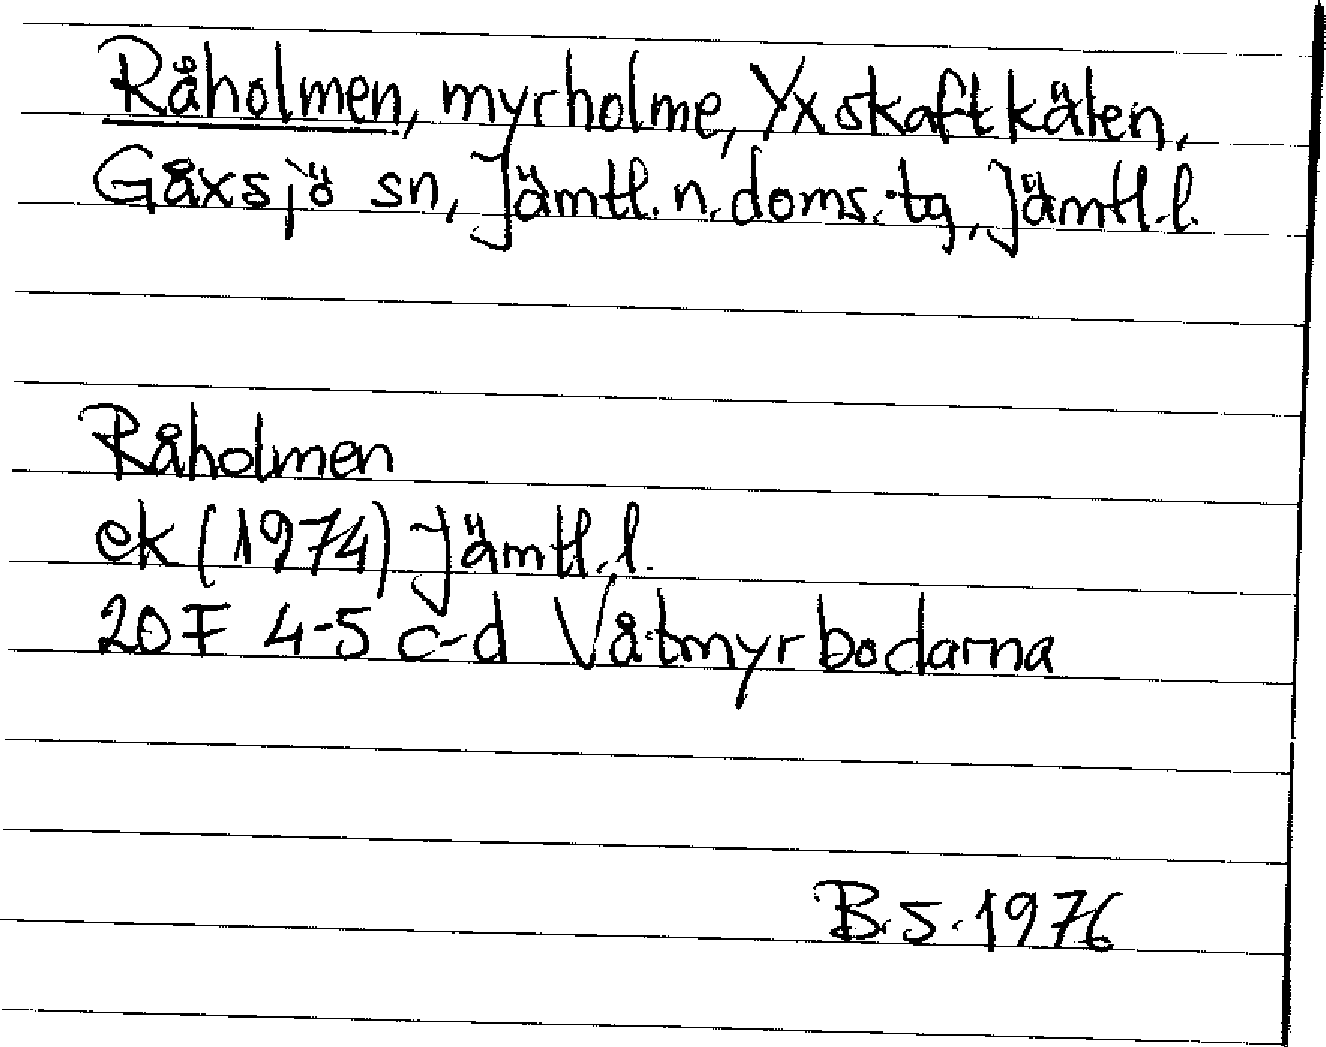 Råholmen, myrholme, Yxskaftkälen,
Gåxsjö sn, Jämtl. n. doms. tg, Jämtl. l.
Råholmen
ek (1974) Jämtl. l.
20F 4-5 c-d Våtmyrbodarna
B.S. 1976